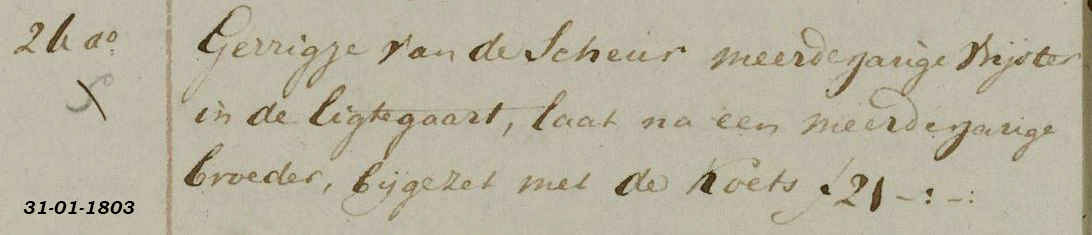 24 do
Gerrigje van de Scheur meerderjarige vrijster
in de ligtegaart, laat na een meerderjarige
broeder, bijgezet met de Koets f 21 -:-:
31-01-1803